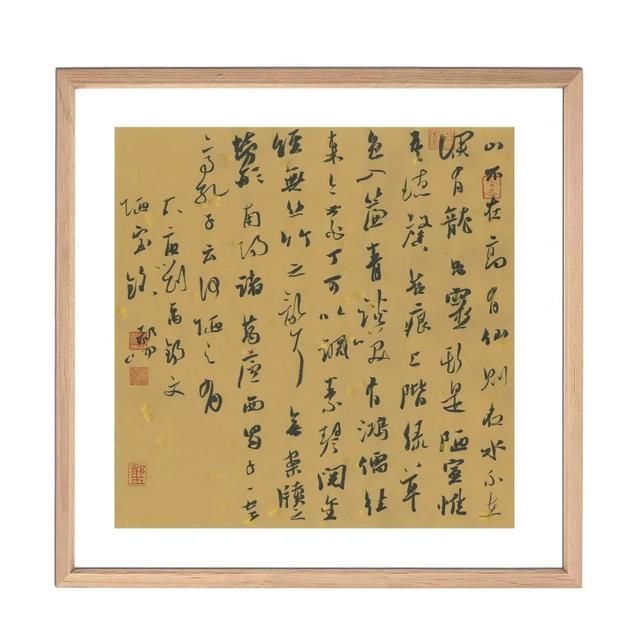 山不在高有仙则名水不在
深有龍則靈斯是陋室惟
吾德馨苔痕上階緑草
色入簾青談笑有鴻儒往
来無白丁可以調素琴閱金
經無丝竹之亂耳無案牘之
勞形南陽諸葛廬西蜀子云
亭孔子云何陋之有
大唐劉禹錫文
陋室銘